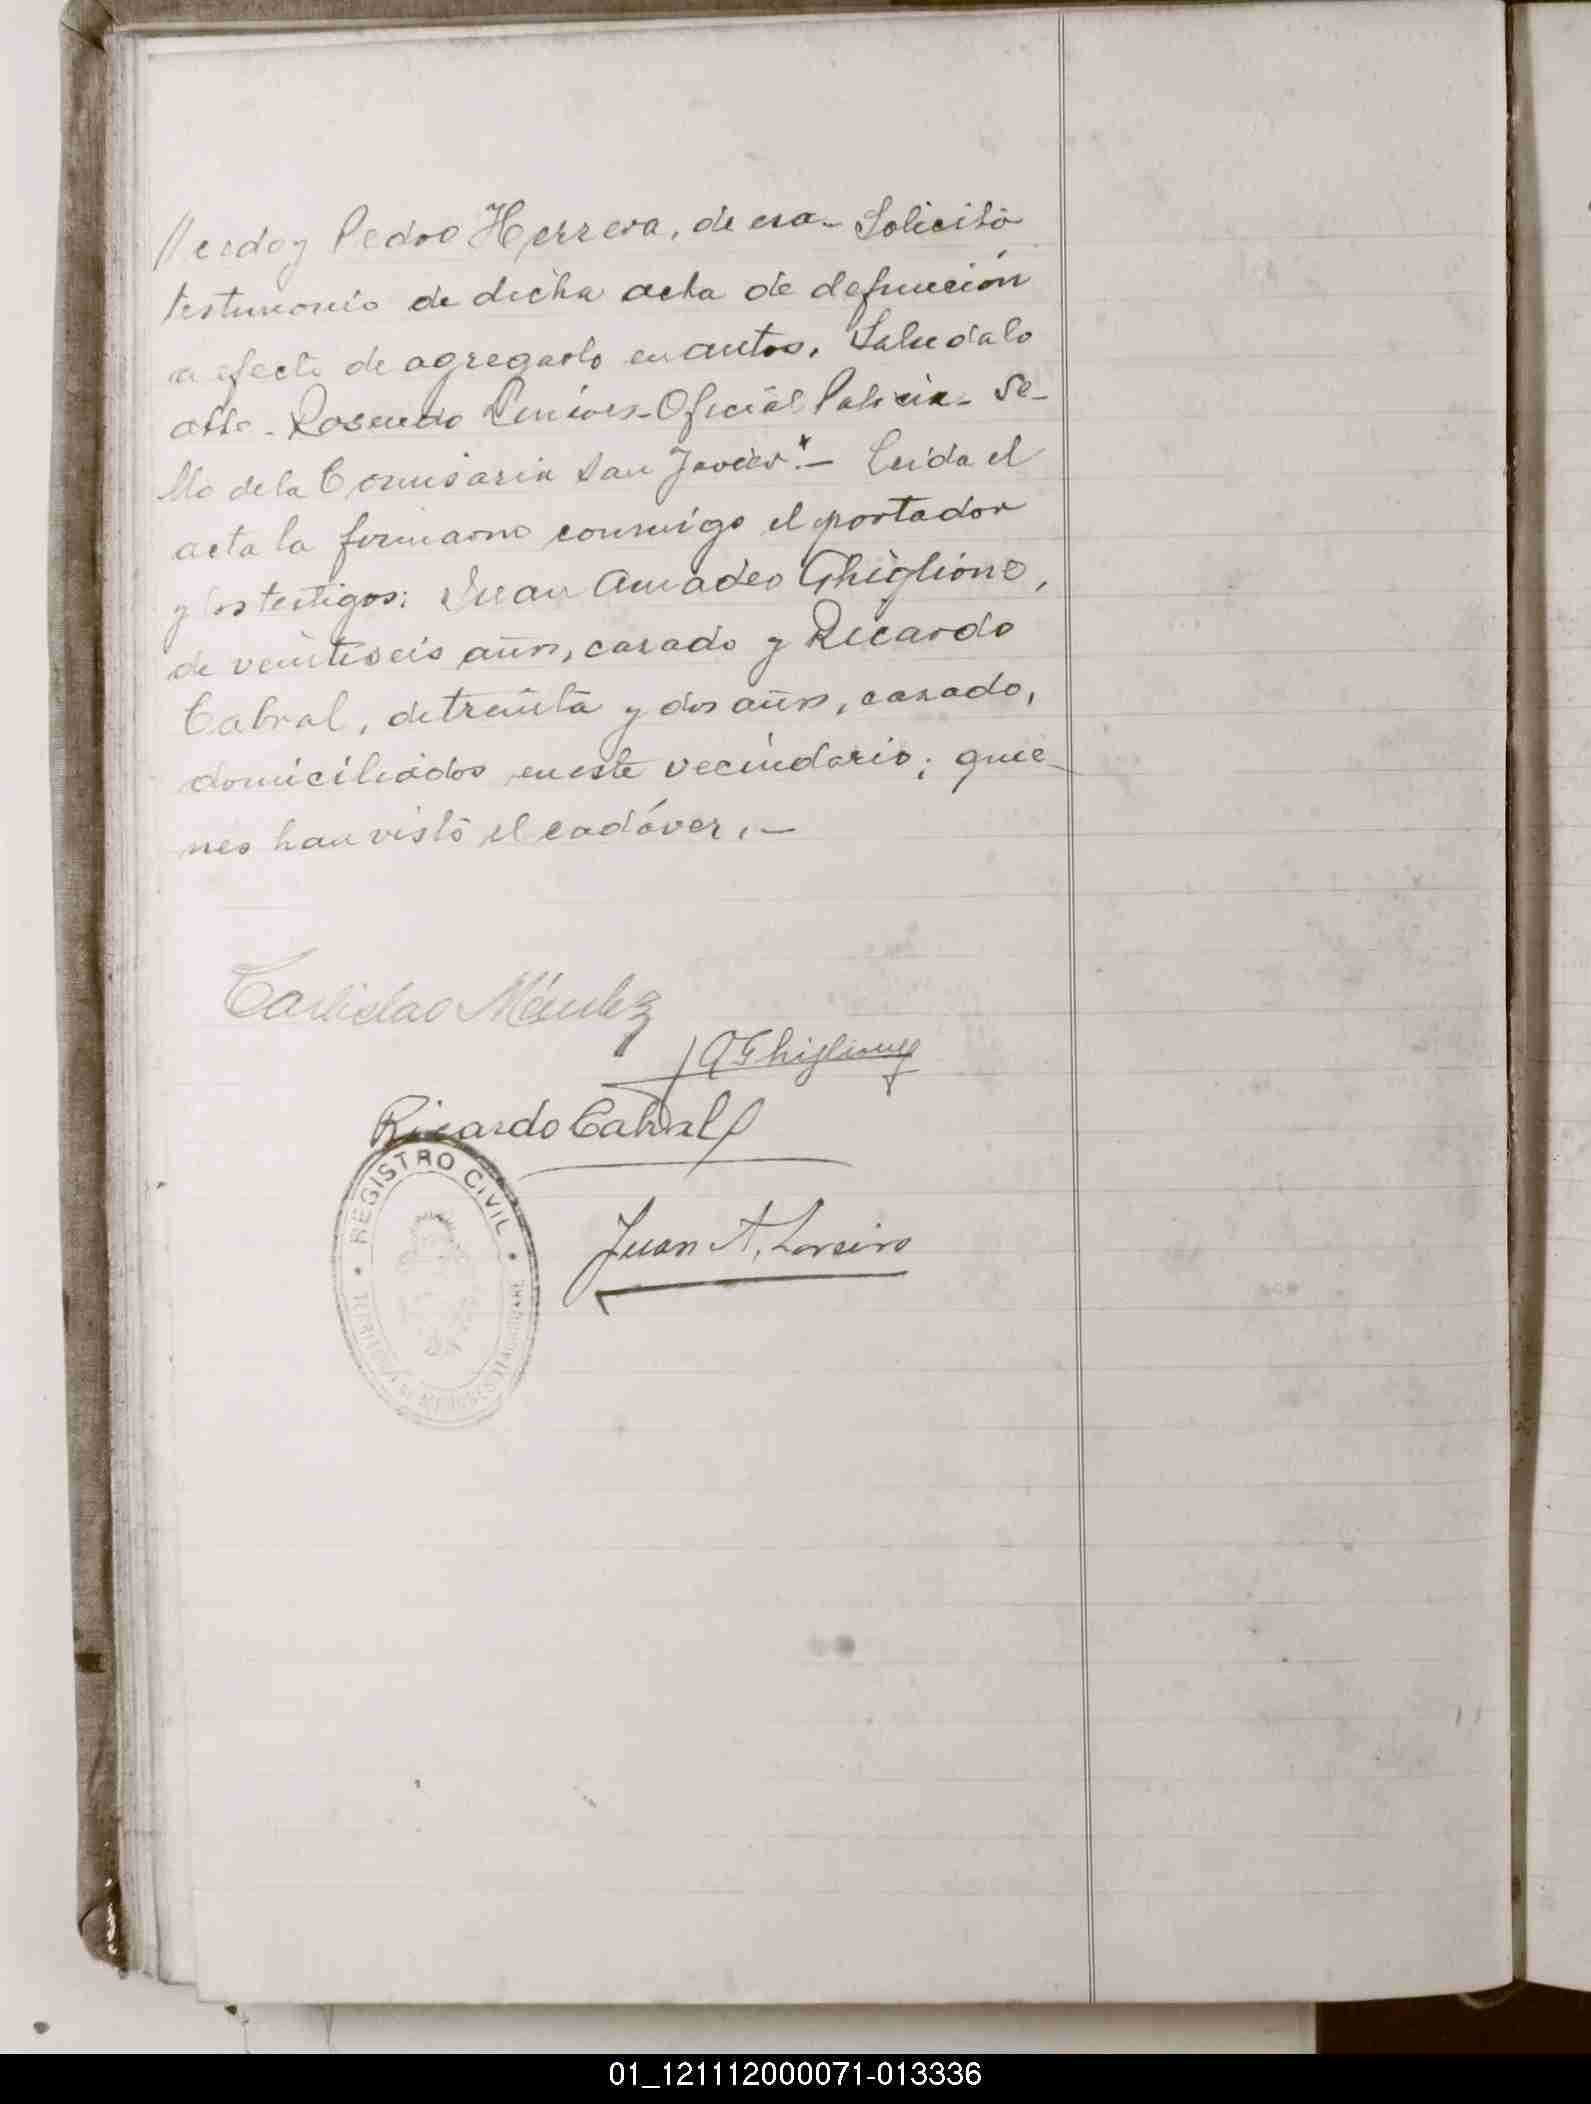 // cedo y Pedro Herrera, de esa - Solicitó
testimonio de dicha acta de defunción
a efecto de agregarlo en autos. Salúdalo
atte - Rosendo - Oficial Policia - Se-
llo de la Comisaria San Javier".- Leida el
acta la firmaron conmigo el portador
y los testigos: Juan Amadeo Ghiglione,
de veintiseis años, casado y Ricardo
Cabral, de treinta y dos años, casado,
domiciliados en este vecindario; quie-
nes han visto el cadáver.-
Méndez
JAGhiglione
Ricardo Cabral
REGISTRO CIVIL
TERRITORIO DE MISIONES
Juan A. Loreiro
01_121112000071-013336